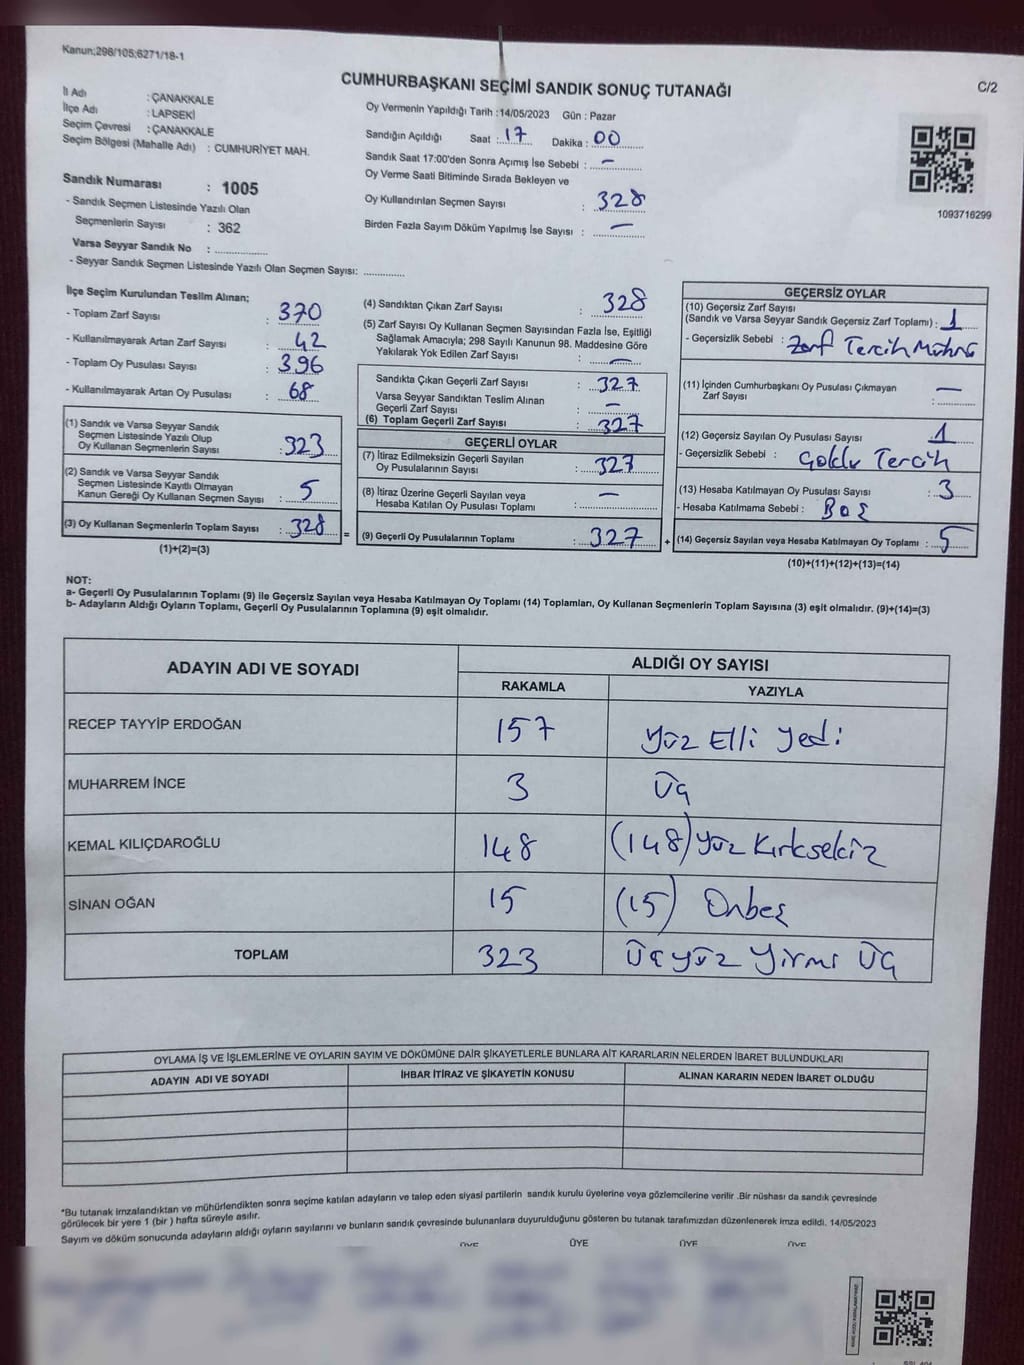 Kanun;298/105;6271/18-1
CUMHURBAŞKANI SEÇİMİ SANDIK SONUÇ TUTANAĞI
C/2
İl Adı : ÇANAKKALE
İlçe Adı : LAPSEKİ
Seçim Çevresi : ÇANAKKALE
Seçim Bölgesi (Mahalle Adı) : CUMHURİYET MAH.
Sandık Numarası : 1005
- Sandık Seçmen Listesinde Yazılı Olan
Seçmenlerin Sayısı : 362
Varsa Seyyar Sandık No : ..............
- Seyyar Sandık Seçmen Listesinde Yazılı Olan Seçmen Sayısı: ............
Oy Vermenin Yapıldığı Tarih : 14/05/2023 Gün : Pazar
Sandığın Açıldığı Saat : 17 Dakika : 00
Sandık Saat 17:00'den Sonra Açımış İse Sebebi : —
Oy Verme Saati Bitiminde Sırada Bekleyen ve
Oy Kullandırılan Seçmen Sayısı : 328
Birden Fazla Sayım Döküm Yapılmış İse Sayısı : —
1093716299
İlçe Seçim Kurulundan Teslim Alınan;
- Toplam Zarf Sayısı : 370
- Kullanılmayarak Artan Zarf Sayısı : 42
- Toplam Oy Pusulası Sayısı : 396
- Kullanılmayarak Artan Oy Pusulası : 68
(1) Sandık ve Varsa Seyyar Sandık
Seçmen Listesinde Yazılı Olup
Oy Kullanan Seçmenlerin Sayısı : 323
(2) Sandık ve Varsa Seyyar Sandık
Seçmen Listesinde Kayıtlı Olmayan
Kanun Gereği Oy Kullanan Seçmen Sayısı : 5
(3) Oy Kullanan Seçmenlerin Toplam Sayısı : 328 =
(1)+(2)=(3)
(4) Sandıktan Çıkan Zarf Sayısı : 328
(5) Zarf Sayısı Oy Kullanan Seçmen Sayısından Fazla İse, Eşitliği
Sağlamak Amacıyla; 298 Sayılı Kanunun 98. Maddesine Göre
Yakılarak Yok Edilen Zarf Sayısı : —
Sandıkta Çıkan Geçerli Zarf Sayısı : 327
Varsa Seyyar Sandıktan Teslim Alınan
Geçerli Zarf Sayısı : —
(6) Toplam Geçerli Zarf Sayısı : 327
GEÇERLİ OYLAR
(7) İtiraz Edilmeksizin Geçerli Sayılan
Oy Pusulalarının Sayısı : 327
(8) İtiraz Üzerine Geçerli Sayılan veya
Hesaba Katılan Oy Pusulası Toplamı : —
(9) Geçerli Oy Pusulalarının Toplamı : 327 +
GEÇERSİZ OYLAR
(10) Geçersiz Zarf Sayısı
(Sandık ve Varsa Seyyar Sandık Geçersiz Zarf Toplamı) : 1
- Geçersizlik Sebebi : Zarf Tercih Mührü
(11) İçinden Cumhurbaşkanı Oy Pusulası Çıkmayan
Zarf Sayısı : —
(12) Geçersiz Sayılan Oy Pusulası Sayısı 1
- Geçersizlik Sebebi : Çoklu Tercih
(13) Hesaba Katılmayan Oy Pusulası Sayısı : 3
- Hesaba Katılmama Sebebi : Boş
(14) Geçersiz Sayılan veya Hesaba Katılmayan Oy Toplamı : 5
(10)+(11)+(12)+(13)=(14)
NOT:
a- Geçerli Oy Pusulalarının Toplamı (9) ile Geçersiz Sayılan veya Hesaba Katılmayan Oy Toplamı (14) Toplamları, Oy Kullanan Seçmenlerin Toplam Sayısına (3) eşit olmalıdır. (9)+(14)=(3)
b- Adayların Aldığı Oyların Toplamı, Geçerli Oy Pusulalarının Toplamına (9) eşit olmalıdır.
ADAYIN ADI VE SOYADI ALDIĞI OY SAYISI
RAKAMLA YAZIYLA
RECEP TAYYİP ERDOĞAN 157 Yüz Elli Yedi
MUHARREM İNCE 3 Üç
KEMAL KILIÇDAROĞLU 148 (148) Yüz Kırksekiz
SİNAN OĞAN 15 (15) Onbeş
TOPLAM 323 Üçyüz Yirmi Üç
OYLAMA İŞ VE İŞLEMLERİNE VE OYLARIN SAYIM VE DÖKÜMÜNE DAİR ŞİKAYETLERLE BUNLARA AİT KARARLARIN NELERDEN İBARET BULUNDUKLARI
ADAYIN ADI VE SOYADI İHBAR İTİRAZ VE ŞİKAYETİN KONUSU ALINAN KARARIN NEDEN İBARET OLDUĞU
*Bu tutanak imzalandıktan ve mühürlendikten sonra seçime katılan adayların ve talep eden siyasi partilerin sandık kurulu üyelerine veya gözlemcilerine verilir .Bir nüshası da sandık çevresinde
görülecek bir yere 1 (bir ) hafta süreyle asılır.
Sayım ve döküm sonucunda adayların aldığı oyların sayılarını ve bunların sandık çevresinde bulunanlara duyurulduğunu gösteren bu tutanak tarafımızdan düzenlenerek imza edildi. 14/05/2023
ÜYE ÜYE ÜYE ÜYE